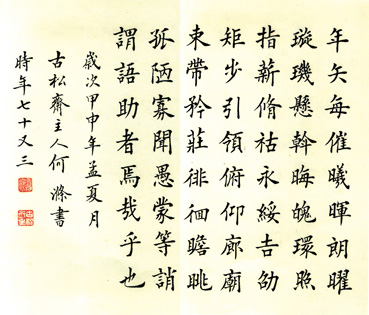 年矢每催曦暉朗曜
璇璣懸斡晦魄環照
指薪脩祜永綏吉劭
矩步引領俯仰廊廟
束帶矜莊徘徊瞻眺
孤陋寡聞愚蒙等誚
謂語助者焉哉乎也
歲次甲申年孟夏月
古松齋主人何滌書
時年七十又三